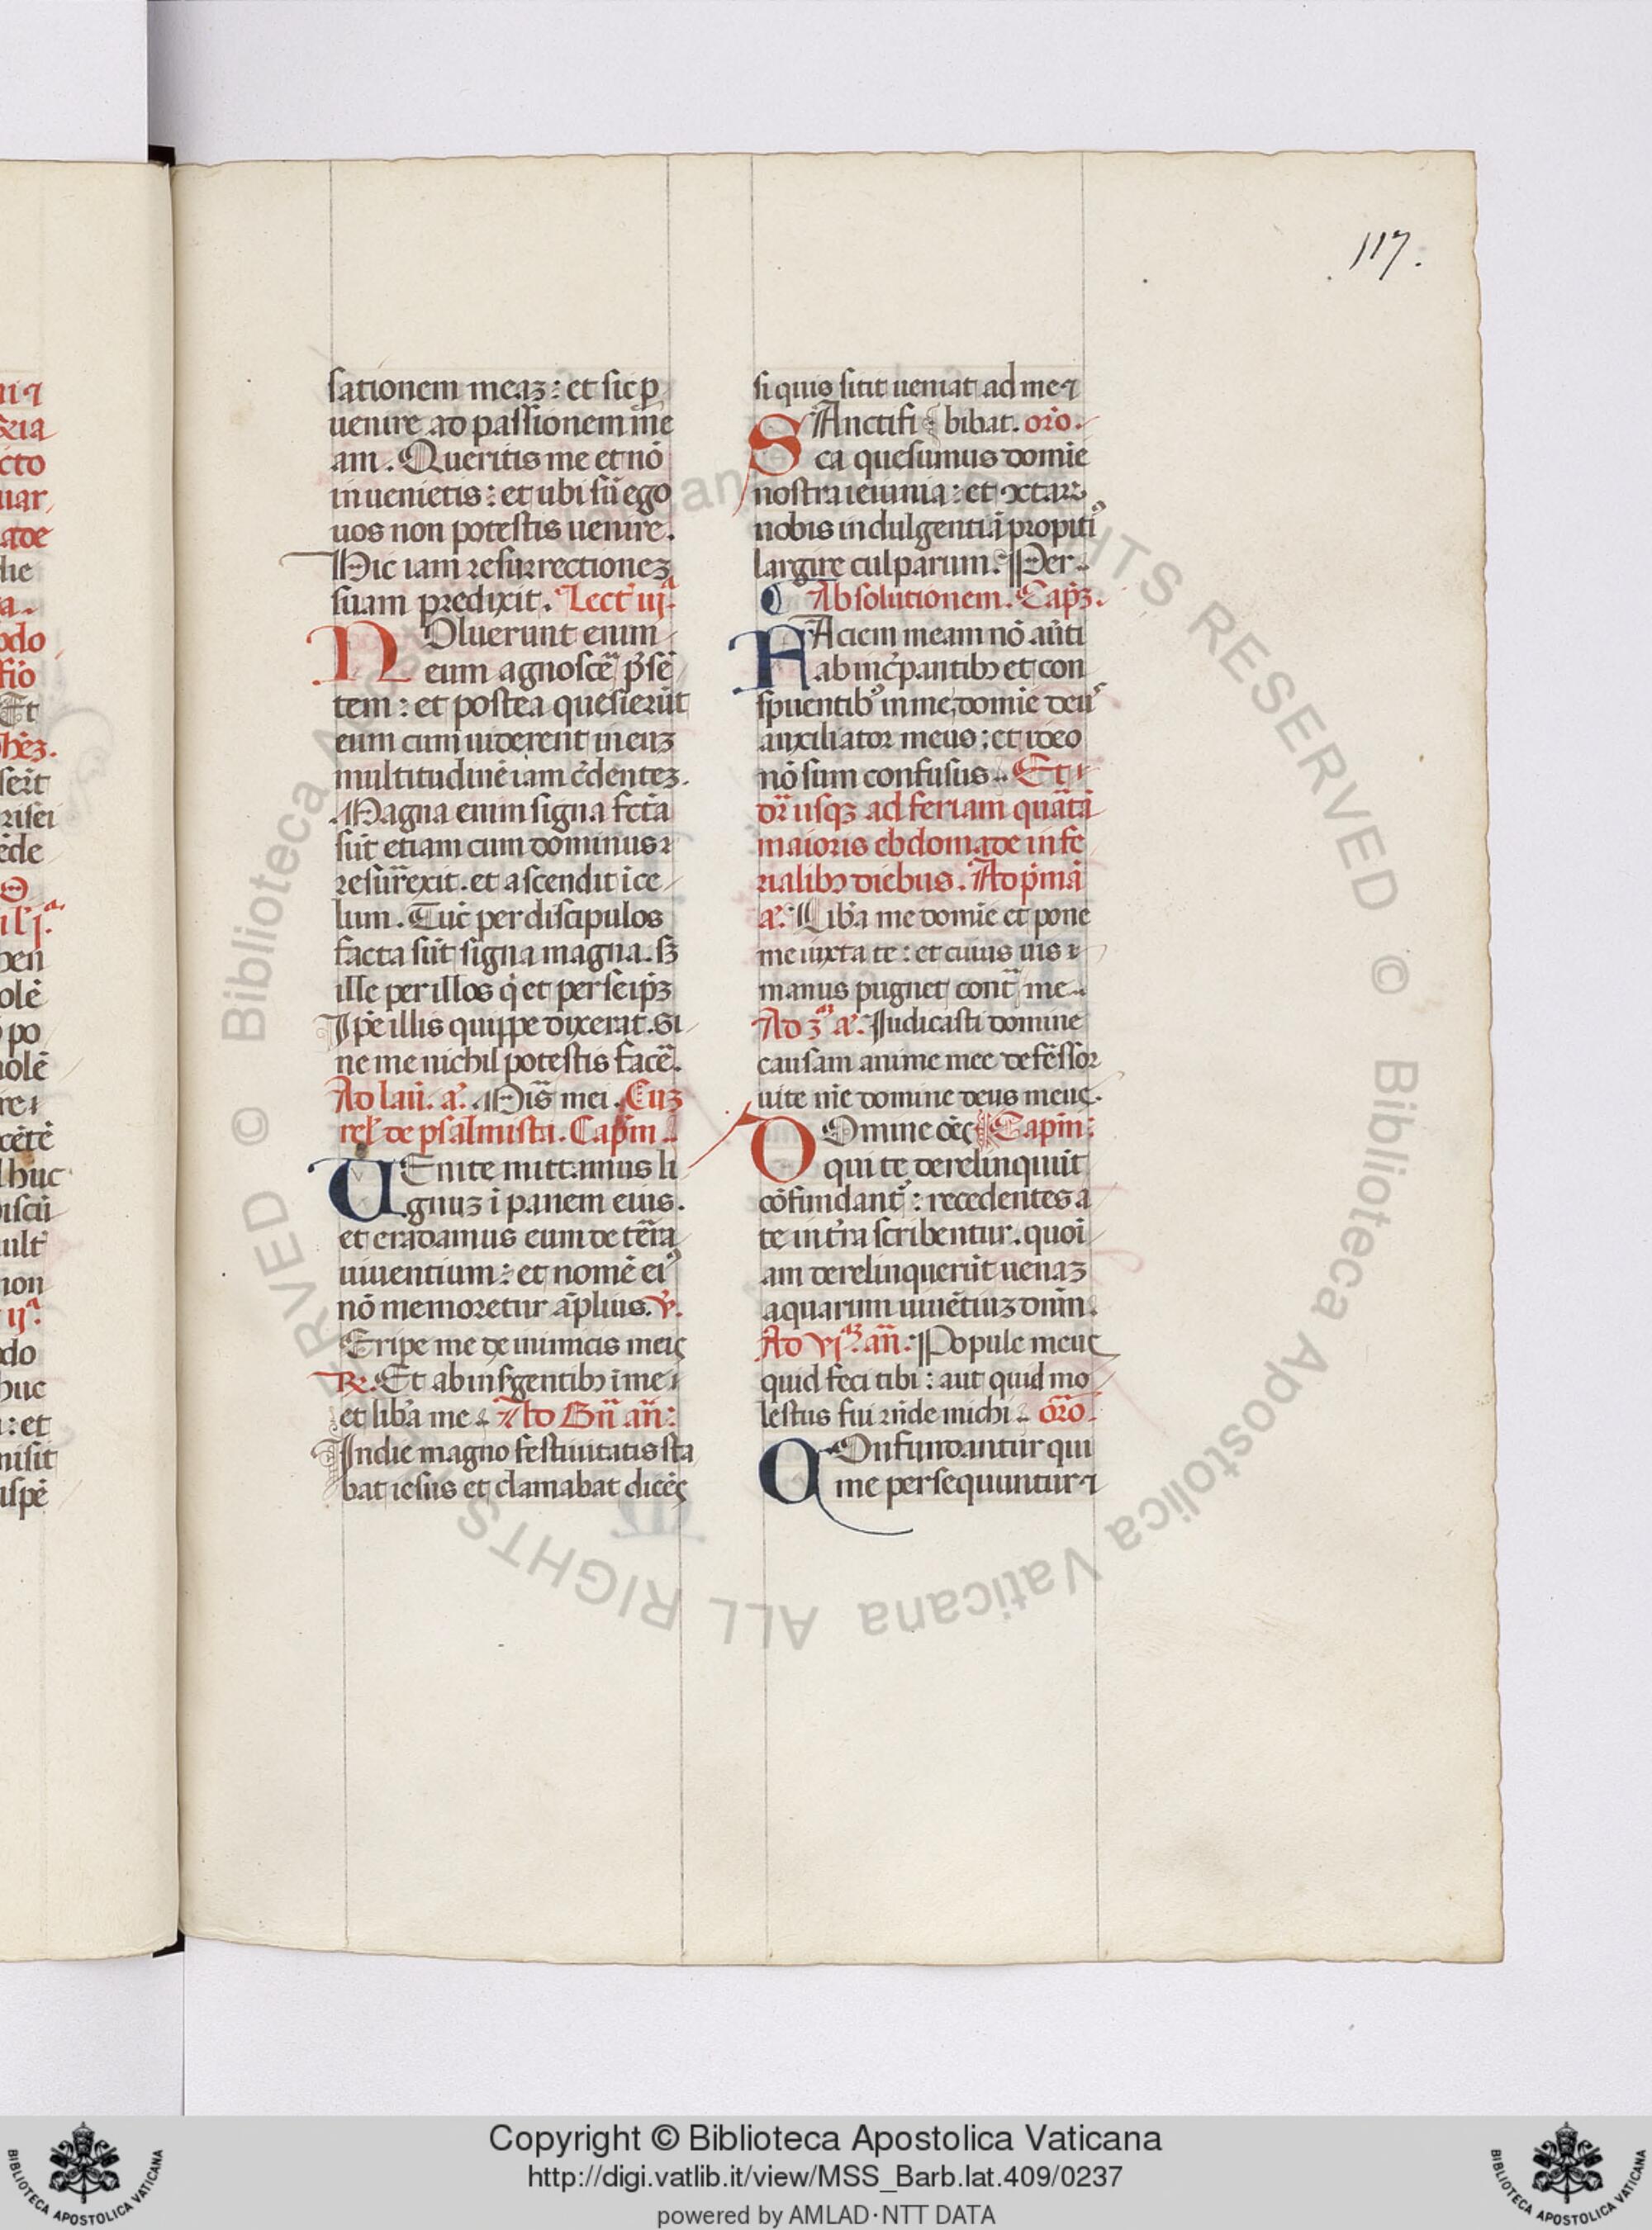 117.
sationem meaz: et sic p
uenire ad passionem me
am. Queritis me et nō
inuenietis: et ubi sū ego
uos non potestis uenire.
Hic iam resurrectionez
suam predixit. Lect iij.ª
NOluerunt enim
eum agnoscē p̄sē
tem: et postea quesierūt
eum cum uiderent in euz
multitudinē iam c̄dentez.
Magna enim signa fcīa
sūt etiam cum dominus
resurrexit. et ascendit ī ce
lum. Tūc per discipulos
facta sūt signa magna. sz
ille per illos q̄ et per seip̄z
Ip̄e illis quippe dixerat. Si
ne me nichil potestis facē.
Ad lau. a. Diī mei. Euz
rel' de psalmista. Capm.
UEnite mittamus li
gnuz ī panem eius.
et eradamus eum de tērra
uiuentium: et nomē ei9
nō memoretur āplius. V.
Eripe me de inimicis meis
R. Et ab insgentibꝫ ī me
et libā me. Ad Bn̄ an̄:
In die magno festiuitatis sta
bat iesus et clamabat dicēs
si quis sitit ueniat ad me ⁊
SAnctifi bibat. oro.
ca quesumus domīe
nostra ieiunia: et cūctarꝫ
nobis indulgentiā propiti9
largire culparum. Per.
Absolutionem. Capꝫ.
FAciem meam nō auti
ab inc̄pantibꝫ et con
spuentib9 in me, domīe deus
auxiliator meus; et ideo
nō sum confusus. Et
dr̄ usqꝫ ad feriam quātā
maioris ebdomade in fe
rialibꝫ diebus. Ad p̄mā
a. Libā me domīe et pone
me iuxta te: et cuius uis
manus pugnet cont̄ me.
Ad 3ā a. Iudicasti domine
causam anime mee defēssor
uite mē domine deus meus.
DOmine ōēs Capm:
qui te derelinquūt
cōfundant: recedentes a
te in tr̄a scribentur. quoī
am derelinquerūt uenaz
aquarum uiuētiuz dnm.
Ad vjꝫ. an: Popule meus
quid feci tibi: aut quid mo
lestus fui rn̄de michi. oro.
COnfundantur qui
me persequuntur ⁊
Copyright © Biblioteca Apostolica Vaticana
http://digi.vatlib.it/view/MSS_Barb.lat.409/0237
powered by AMLAD·NTT DATA